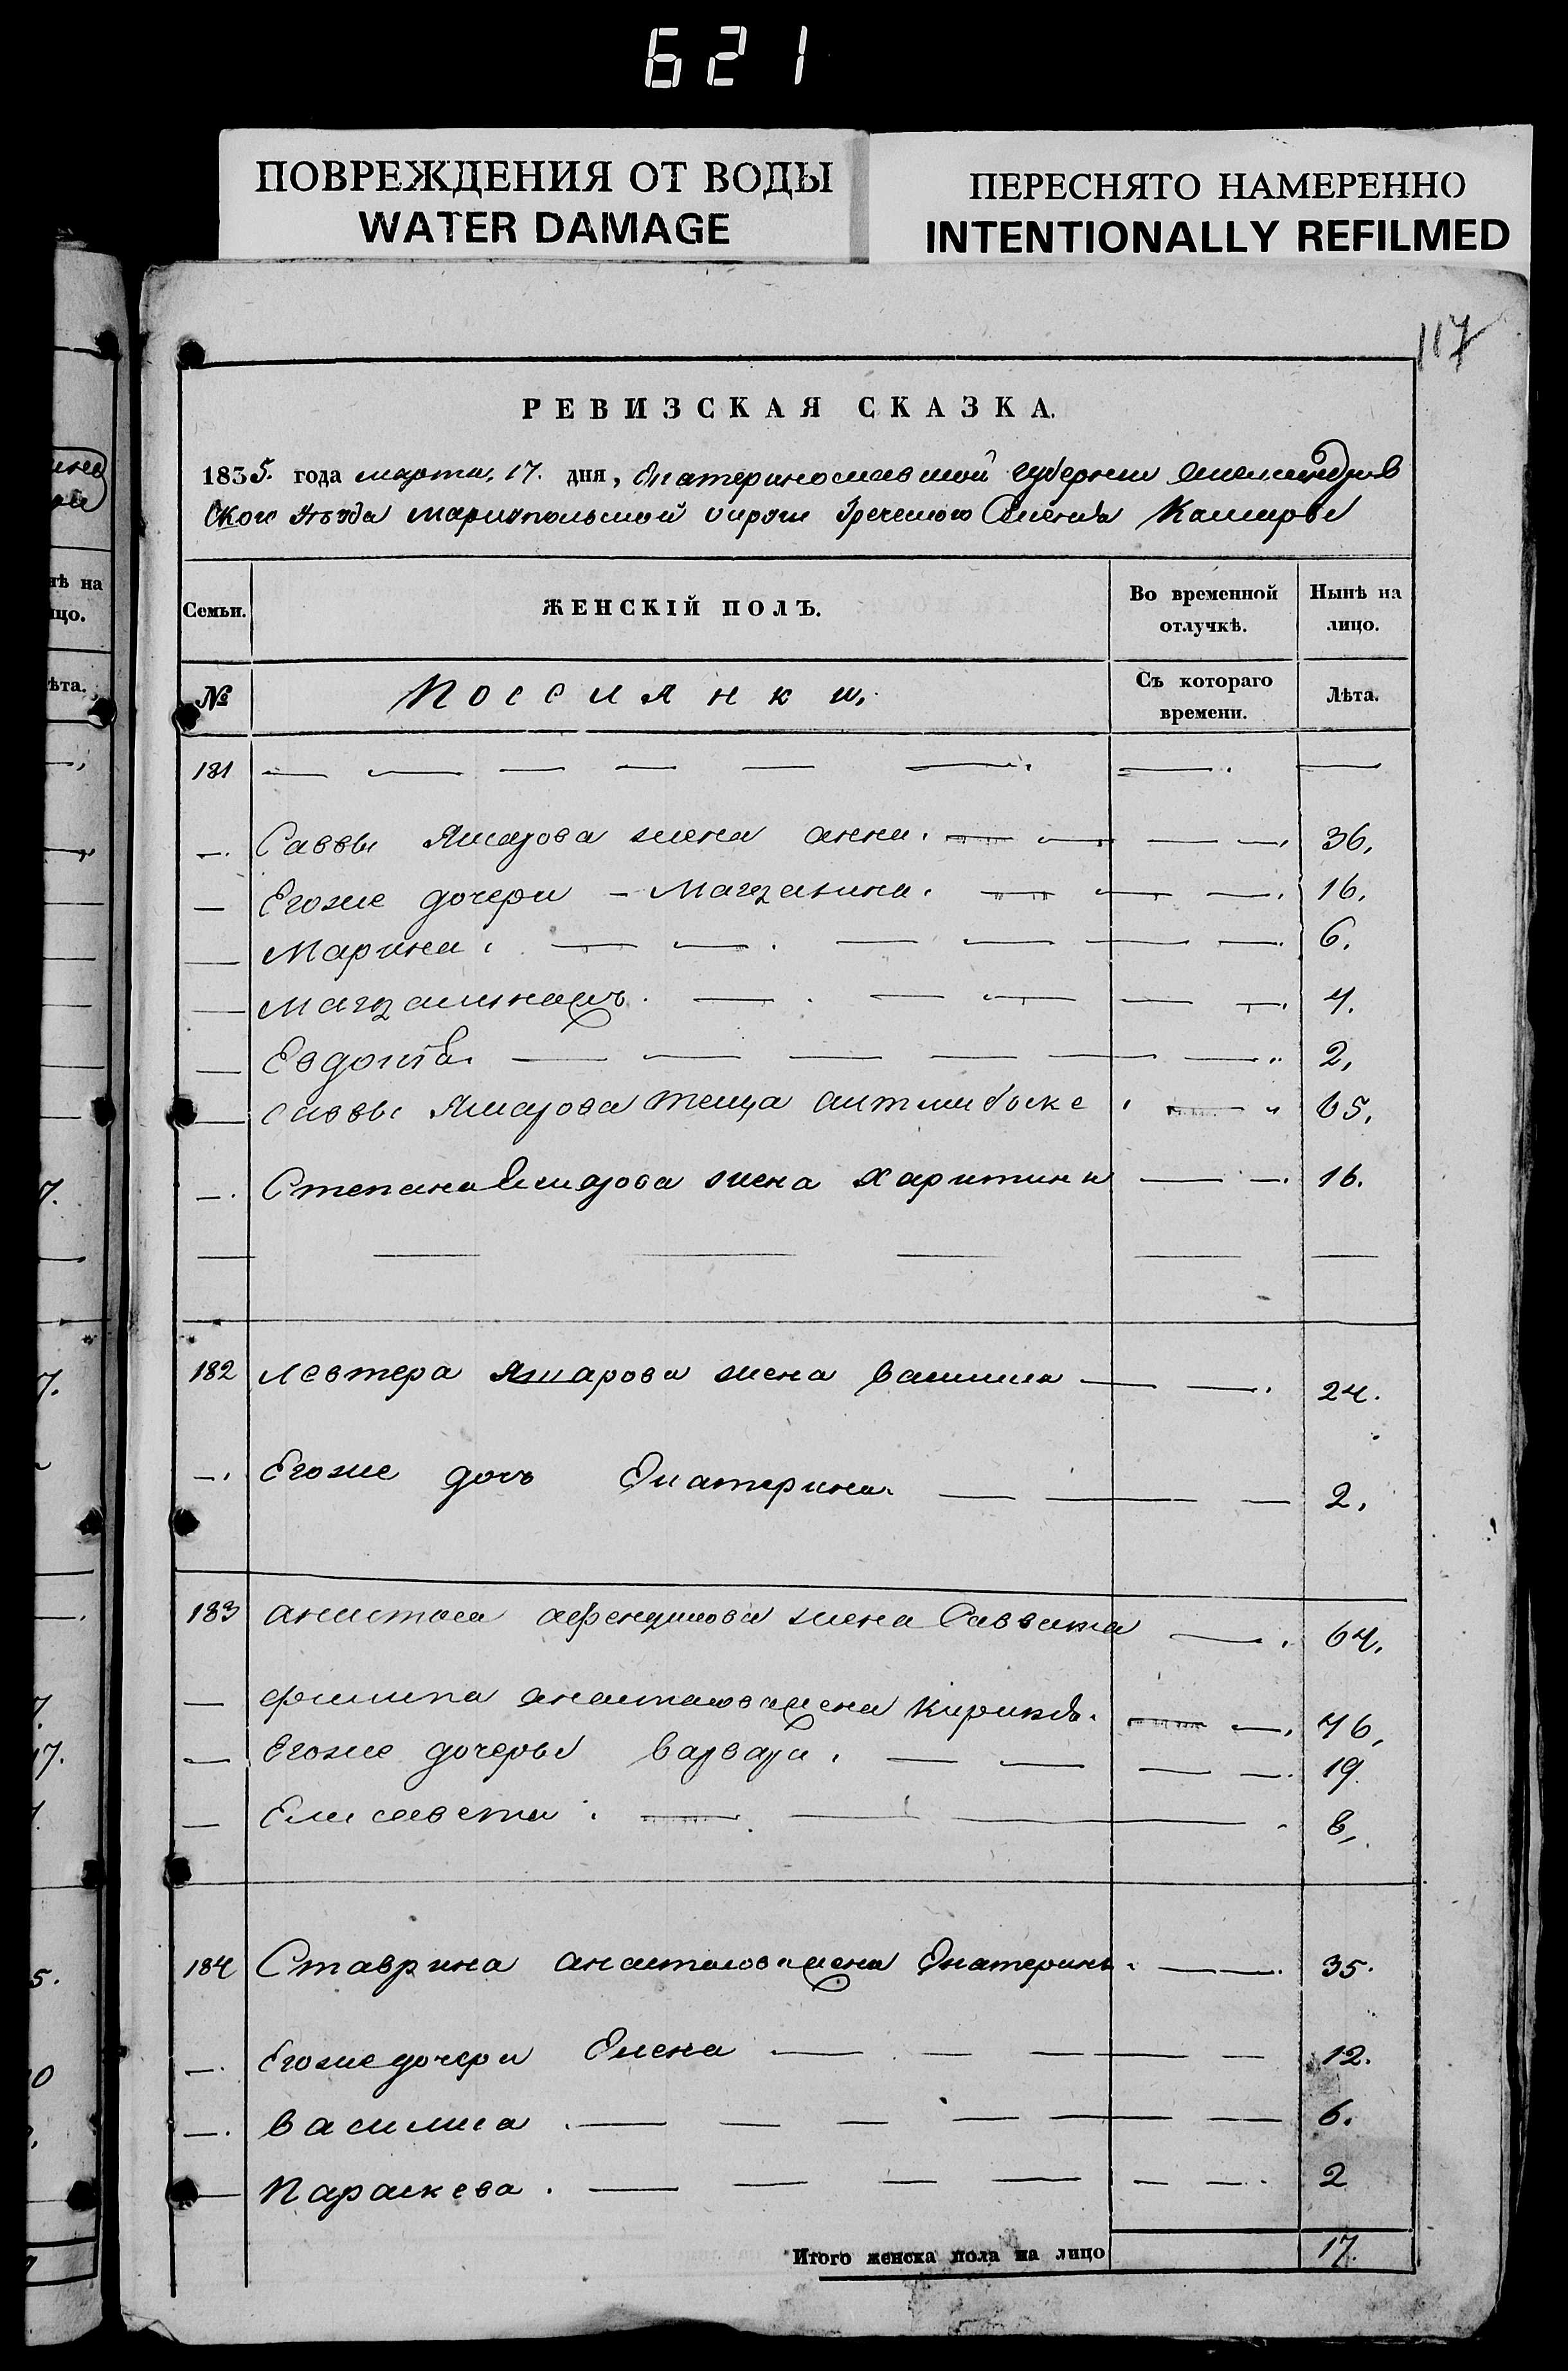 621
ПОВРЕЖДЕНИЯ ОТ ВОДЫ
WATER DAMAGE
ПЕРЕСНЯТО НАМЕРЕННО
INTENTIONALLY REFILMED
117
РЕВИЗСКАЯ СКАЗКА.
1835. года марта. 17. дня, Екатеринославской губернии Александров
ского уѣзда мариупольской округи Греческого Селенія
Семьи. ЖЕНСКІЙ ПОЛЪ. Во временной отлучкѣ. Нынѣ на лицо.
№ Поселянки. Съ котораго времени. Лѣта.
181
Саввы Яшарова жена анна. 36.
Егоже дочери - 16.
Марина. 6.
4.
Евдокія. 2.
Саввы Яшарова теща 65.
Степана Яшарова жена Харитина 16.
182 Левтера Яшарова жена василиса 24.
Егоже дочь Екатерина. 2.
183 жена 64.
филипа жена 46.
Егоже дочеры варвара. 19.
Елисавета. 8.
184 Ставрина жена Екатерина. 35.
Егоже дочери Елена 12.
василиса. 6.
Параскева. 2
Итого женска пола на лицо 17.